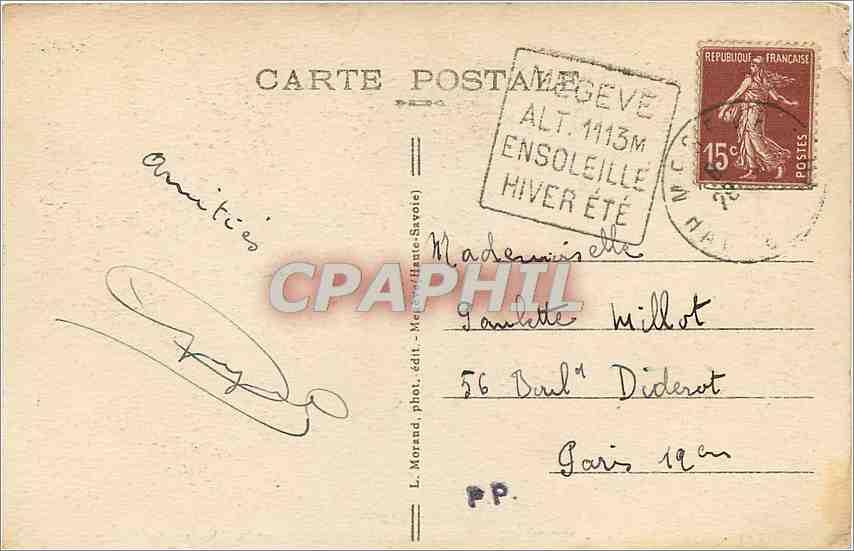 CARTE POSTALE
MEGEVE
ALT. 1113M
ENSOLEILLÉ
HIVER ÉTÉ
REPUBLIQUE FRANÇAISE
15c
POSTES
Amitiés
CPAPHIL
L. Morand, phot. édit. - Megève (Haute-Savoie)
Mademoiselle
Paulette Millot
56 Bould Diderot
Paris 12em
PP.